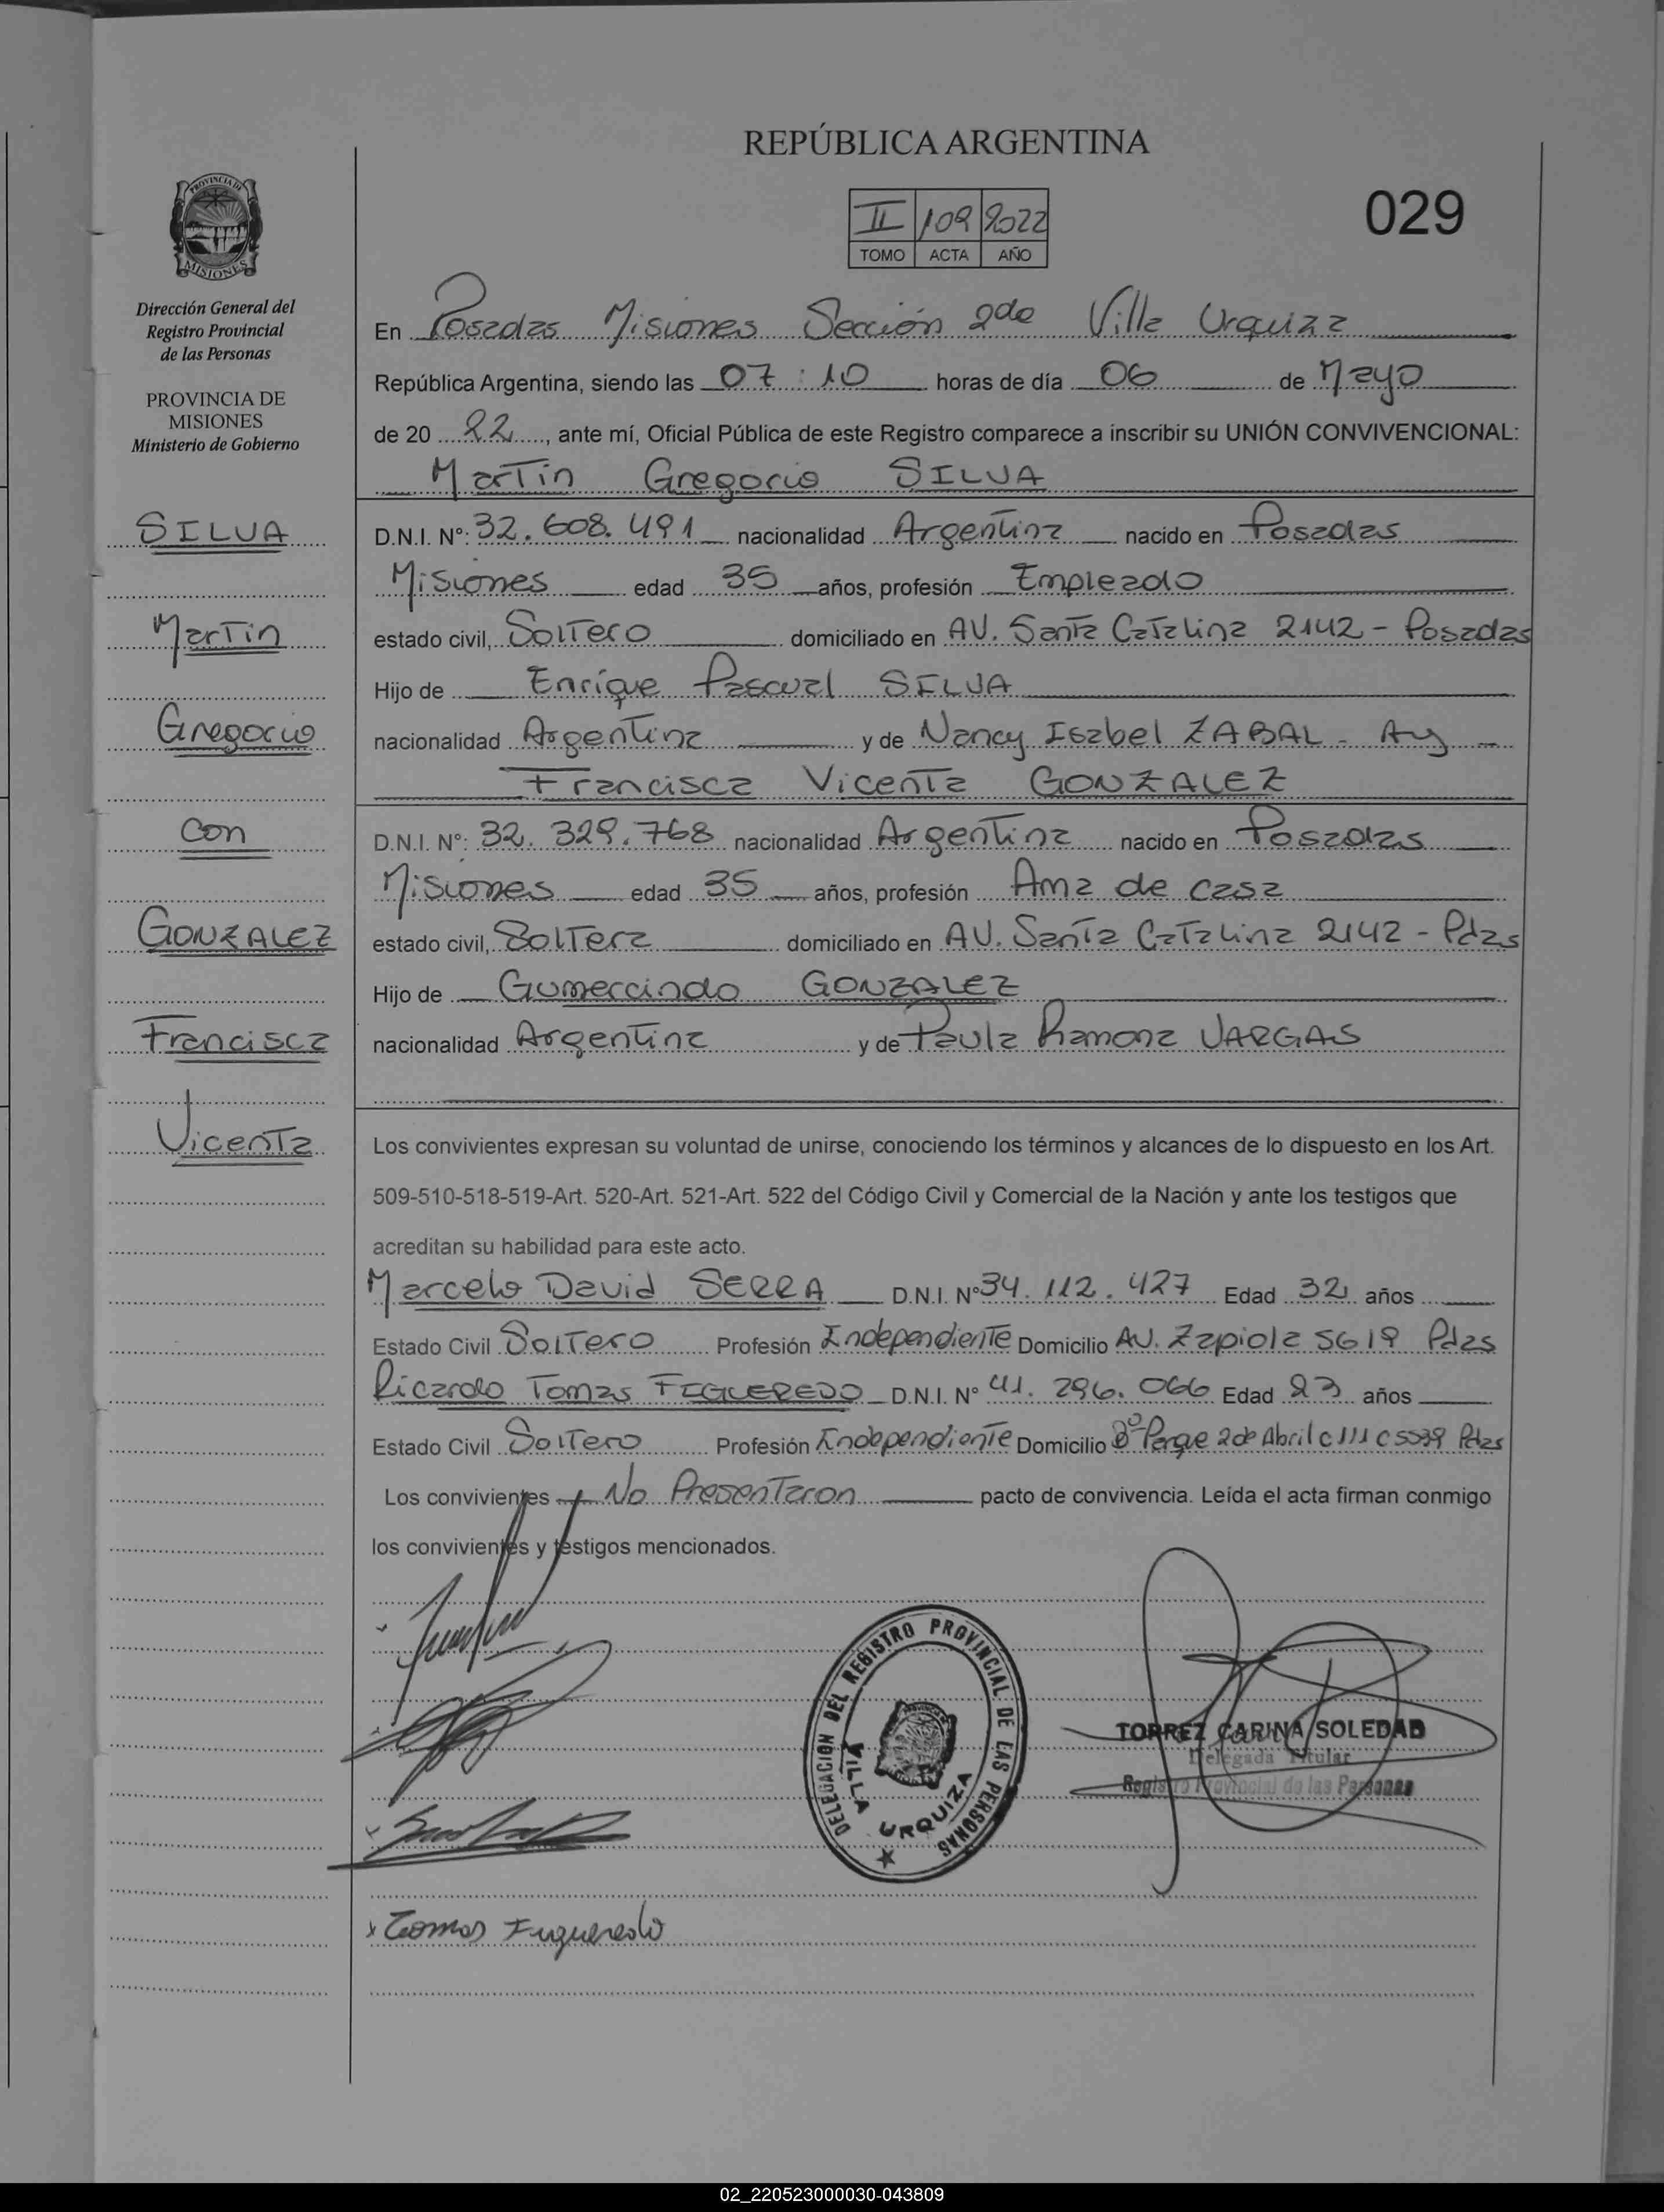 REPÚBLICA ARGENTINA
II 109 2022
TOMO ACTA AÑO
029
PROVINCIA DE
MISIONES
Dirección General del
Registro Provincial
de las Personas
PROVINCIA DE
MISIONES
Ministerio de Gobierno
SILVA
Martin
Gregorio
con
GONZALEZ
Francisca
Vicenta
En Posadas Misiones Sección 2da Villa Urquiza
República Argentina, siendo las 07:10 horas de día 06 de Mayo
de 20 22, ante mí, Oficial Pública de este Registro comparece a inscribir su UNIÓN CONVIVENCIONAL:
Martin Gregorio SILVA
D.N.I. Nº: 32.608.491 nacionalidad Argentina nacido en Posadas
Misiones edad 35 años, profesión Empleado
estado civil, Soltero domiciliado en AV. Santa Catalina 2142 - Posadas
Hijo de Enrique Pascual SILVA
nacionalidad Argentina y de Nancy Isabel ZABAL - Arg
Francisca Vicenta GONZALEZ
D.N.I. Nº: 32.329.768 nacionalidad Argentina nacido en Posadas
Misiones edad 35 años, profesión Ama de casa
estado civil, Soltera domiciliado en AV. Santa Catalina 2142 - Pdas
Hijo de Gumercindo GONZALEZ
nacionalidad Argentina y de Paula Ramona VARGAS
Los convivientes expresan su voluntad de unirse, conociendo los términos y alcances de lo dispuesto en los Art.
509-510-518-519-Art. 520-Art. 521-Art. 522 del Código Civil y Comercial de la Nación y ante los testigos que
acreditan su habilidad para este acto.
Marcelo David SERRA D.N.I. Nº 34.112.427 Edad 32 años
Estado Civil Soltero Profesión Independiente Domicilio AV. Zapiola 5619 Pdas
Ricardo Tomas FIGUEREDO D.N.I. Nº 41.296.066 Edad 23 años
Estado Civil Soltero Profesión Independiente Domicilio Bº Parque 2 de Abril c 111 C 5539 Pdas
Los convivientes No Presentaron pacto de convivencia. Leída el acta firman conmigo
los convivientes y testigos mencionados.
DELEGACION DEL REGISTRO PROVINCIAL DE LAS PERSONAS
VILLA URQUIZA
TORREZ CARINA SOLEDAD
Delegada Titular
Registro Provincial de las Personas
x Tomas Figueredo
02_220523000030-043809